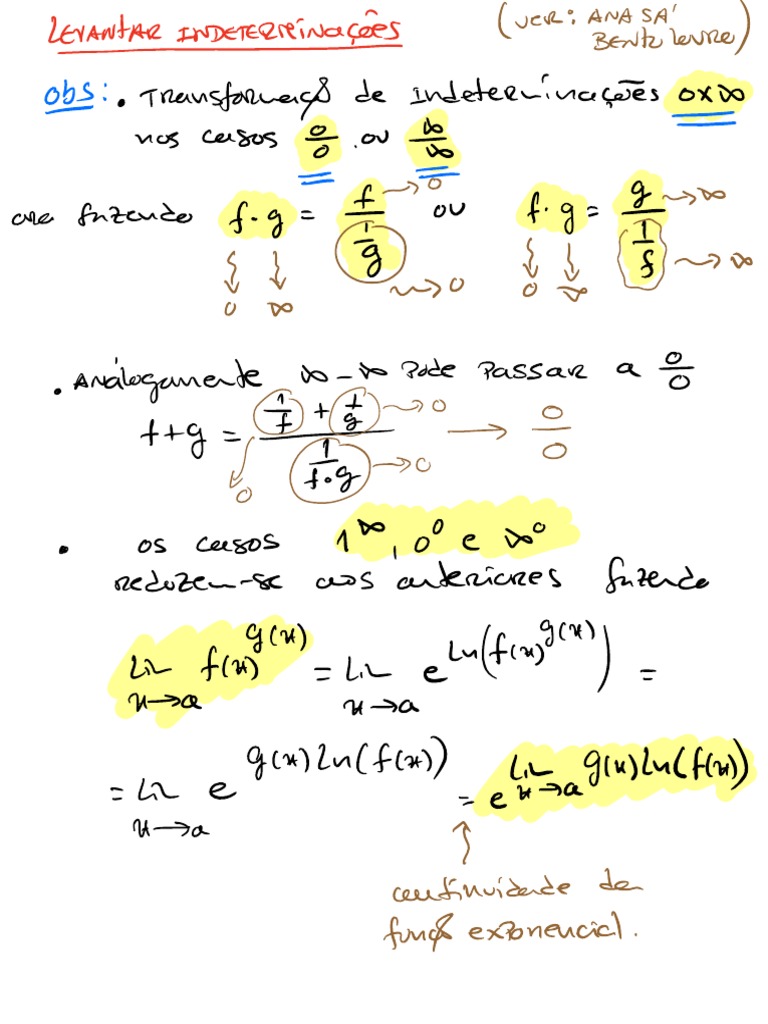 LEVANTAR INDETERMINAÇÕES
(VER: ANA SÁ
BENTO LOURO)
obs: • TRansformação de indeterminações 0×∞
nos casos 0/0 ou ∞/∞
fazendo f·g = f/(1/g) → 0 ou f·g = g/(1/f) → ∞
0 ∞ → 0 0 ∞ → ∞
• Análogamente ∞-∞ pode passar a 0/0
f+g = (1/f + 1/g)/(1/(f·g)) → 0/0
0 → 0 → 0
• os casos 1^∞, 0^0 e ∞^0
reduzem-se aos anteriores fazendo
Lim x→a f(x)^g(x) = Lim x→a e^ln(f(x)^g(x)) =
= Lim x→a e^g(x)ln(f(x)) = e^Lim x→a g(x)ln(f(x))
continuidade da
função exponencial.